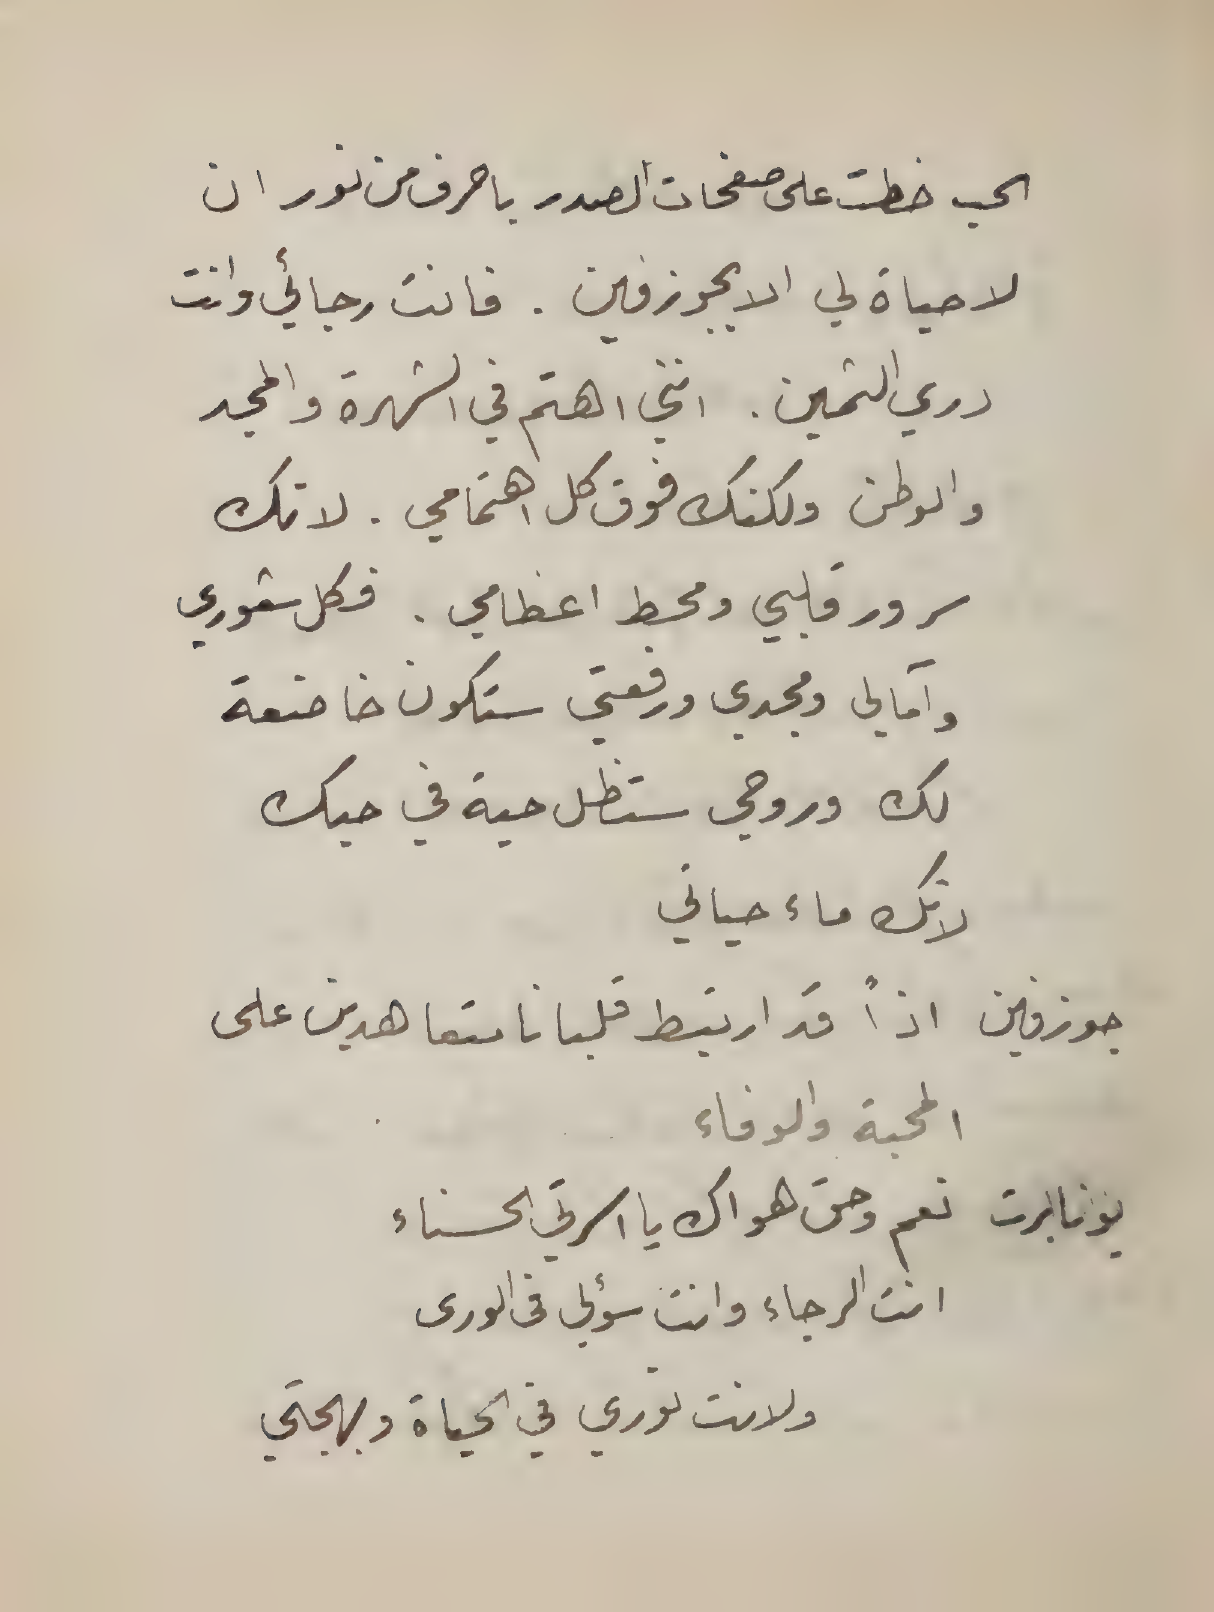 الحب خطت على صفحات الصدر باحرف من نور ان
لا حياة لي الا بجوزفين . فانت رجائي وانت
دري الثمين . انني اهتم في الشهرة والمجد
والوطن ولكنك فوق كل اهتمامي . لانك
سرور قلبي ومحط اعظامي . فكل شعوري
وآمالي ومجدي ورفعتي ستكون خاضعة
لك وروحي ستظل حية في حبك
لانك ماء حياتي
جوزفين اذاً قد ارتبط قلبانا متعاهدين على
المحبة والوفاء
بونابرت نعم وحق هواك يا اسرتي الحسناء
انت الرجاء وانت سؤلي في الورى
ولانت نوري في الحياة وبهجتي